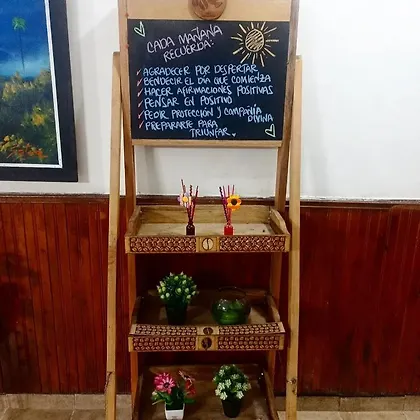 CADA MAÑANA
RECUERDA:
✓ AGRADECER POR DESPERTAR
✓ BENDECIR EL DIA QUE COMIENZA
✓ HACER AFIRMACIONES POSITIVAS
✓ PENSAR EN POSITIVO
✓ PEDIR PROTECCIÓN Y COMPAÑIA
DIVINA
✓ PREPARARTE PARA
TRIUNFAR.